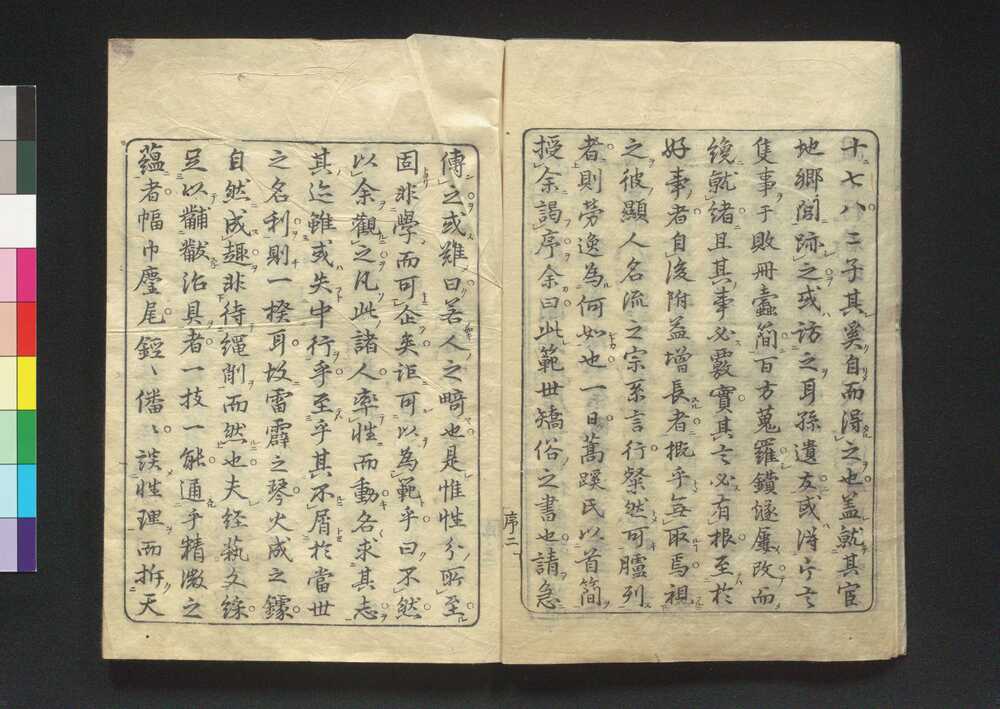 十七八三子其奚自而得之也盖就其宦
地郷閭跡之或訪之耳孫遺友或得片言
隻事于敗冊蠹簡百方蒐羅鑚燧屢改而
纔就緒且其事必覈實其言必有根至於
好事者自後附益増長者概乎無取焉視
之彼顯人名流之宗系言行粲然可臚列
者則勞逸為何如也一日蒿蹊氏以首簡
授余謁序余曰此範世矯俗之書也請急
序二
傳之或難曰若人之畸也是惟性分所至
固非學而可企矣詎可以為範乎曰不然
以余觀之凡此諸人率性而動各求其志
其迹雖或失中行乎至乎其不屑於當世
之名利則一揆耳故雷霹之琴火成之鐻
自然成趣非待繩削而然也夫経藝文綵
足以黼黻治具者一技一能通乎精微之
蘊者幅巾麈尾鏗〻僠〻談性理而折天